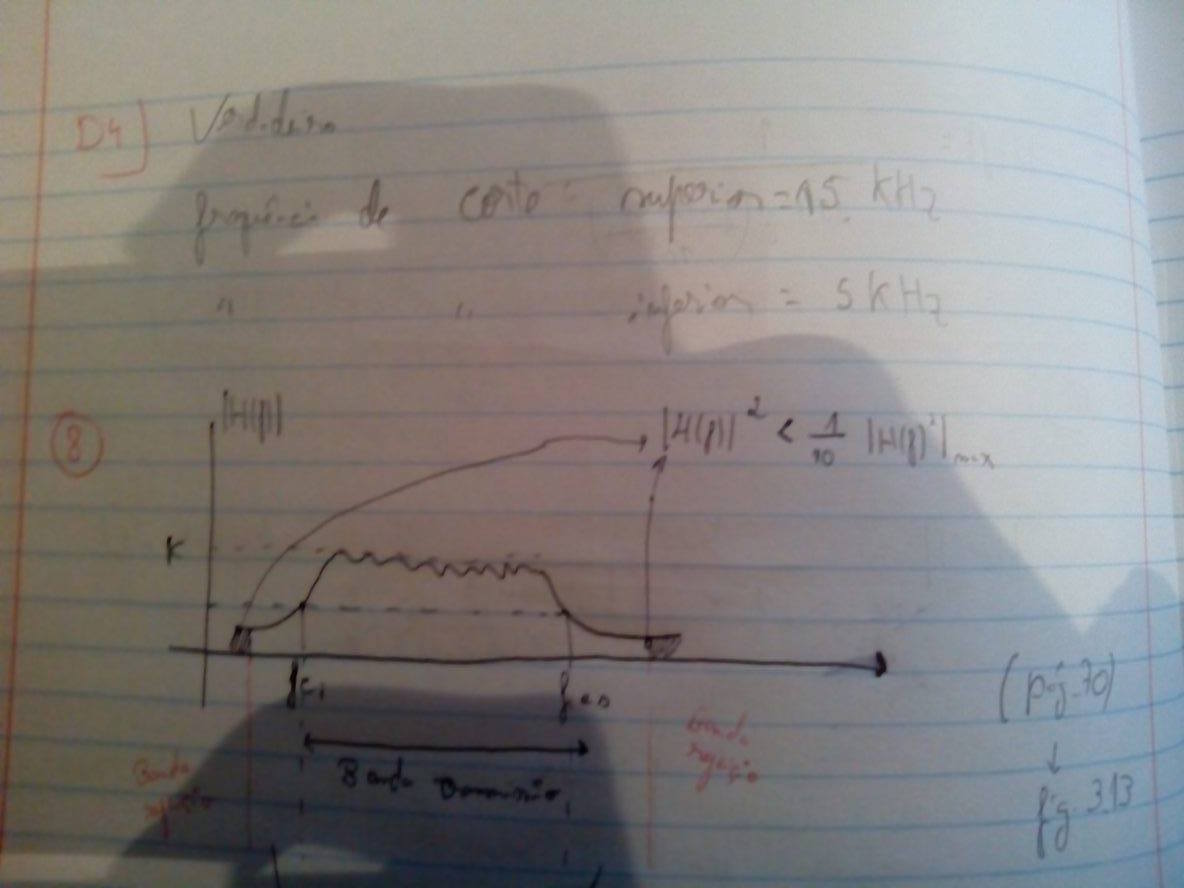 D4) Verdadeiro
frequência de corte: superior = 15 KHz
" " inferior = 5 KHz
8
|H(f)|
|H(f)|² < 1/10 |H(f)²|max
K
fci fcs
Banda transmissão
Banda rejeição
Banda rejeição
(pág. 70)
↓
fig. 3.13